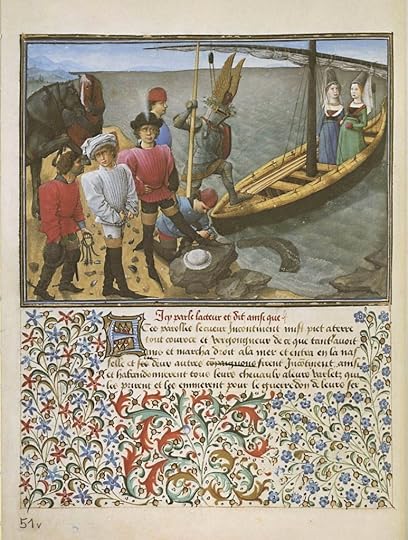 Icy parle lacteur et dit ainsi que
Ces parolles le cueur Incontinent mist piet a terre
tout courcie et vergongneux de ce que tant lavoit
et marcha droit a la mer et entra en la nas
selle et ses deux autres compaignons firent Incontinent ainsi
et habandonnerent tous leurs chevaulx a leurs varletz qui
les prirent et les emmenerent pour le guerredon de leurs ser
51v